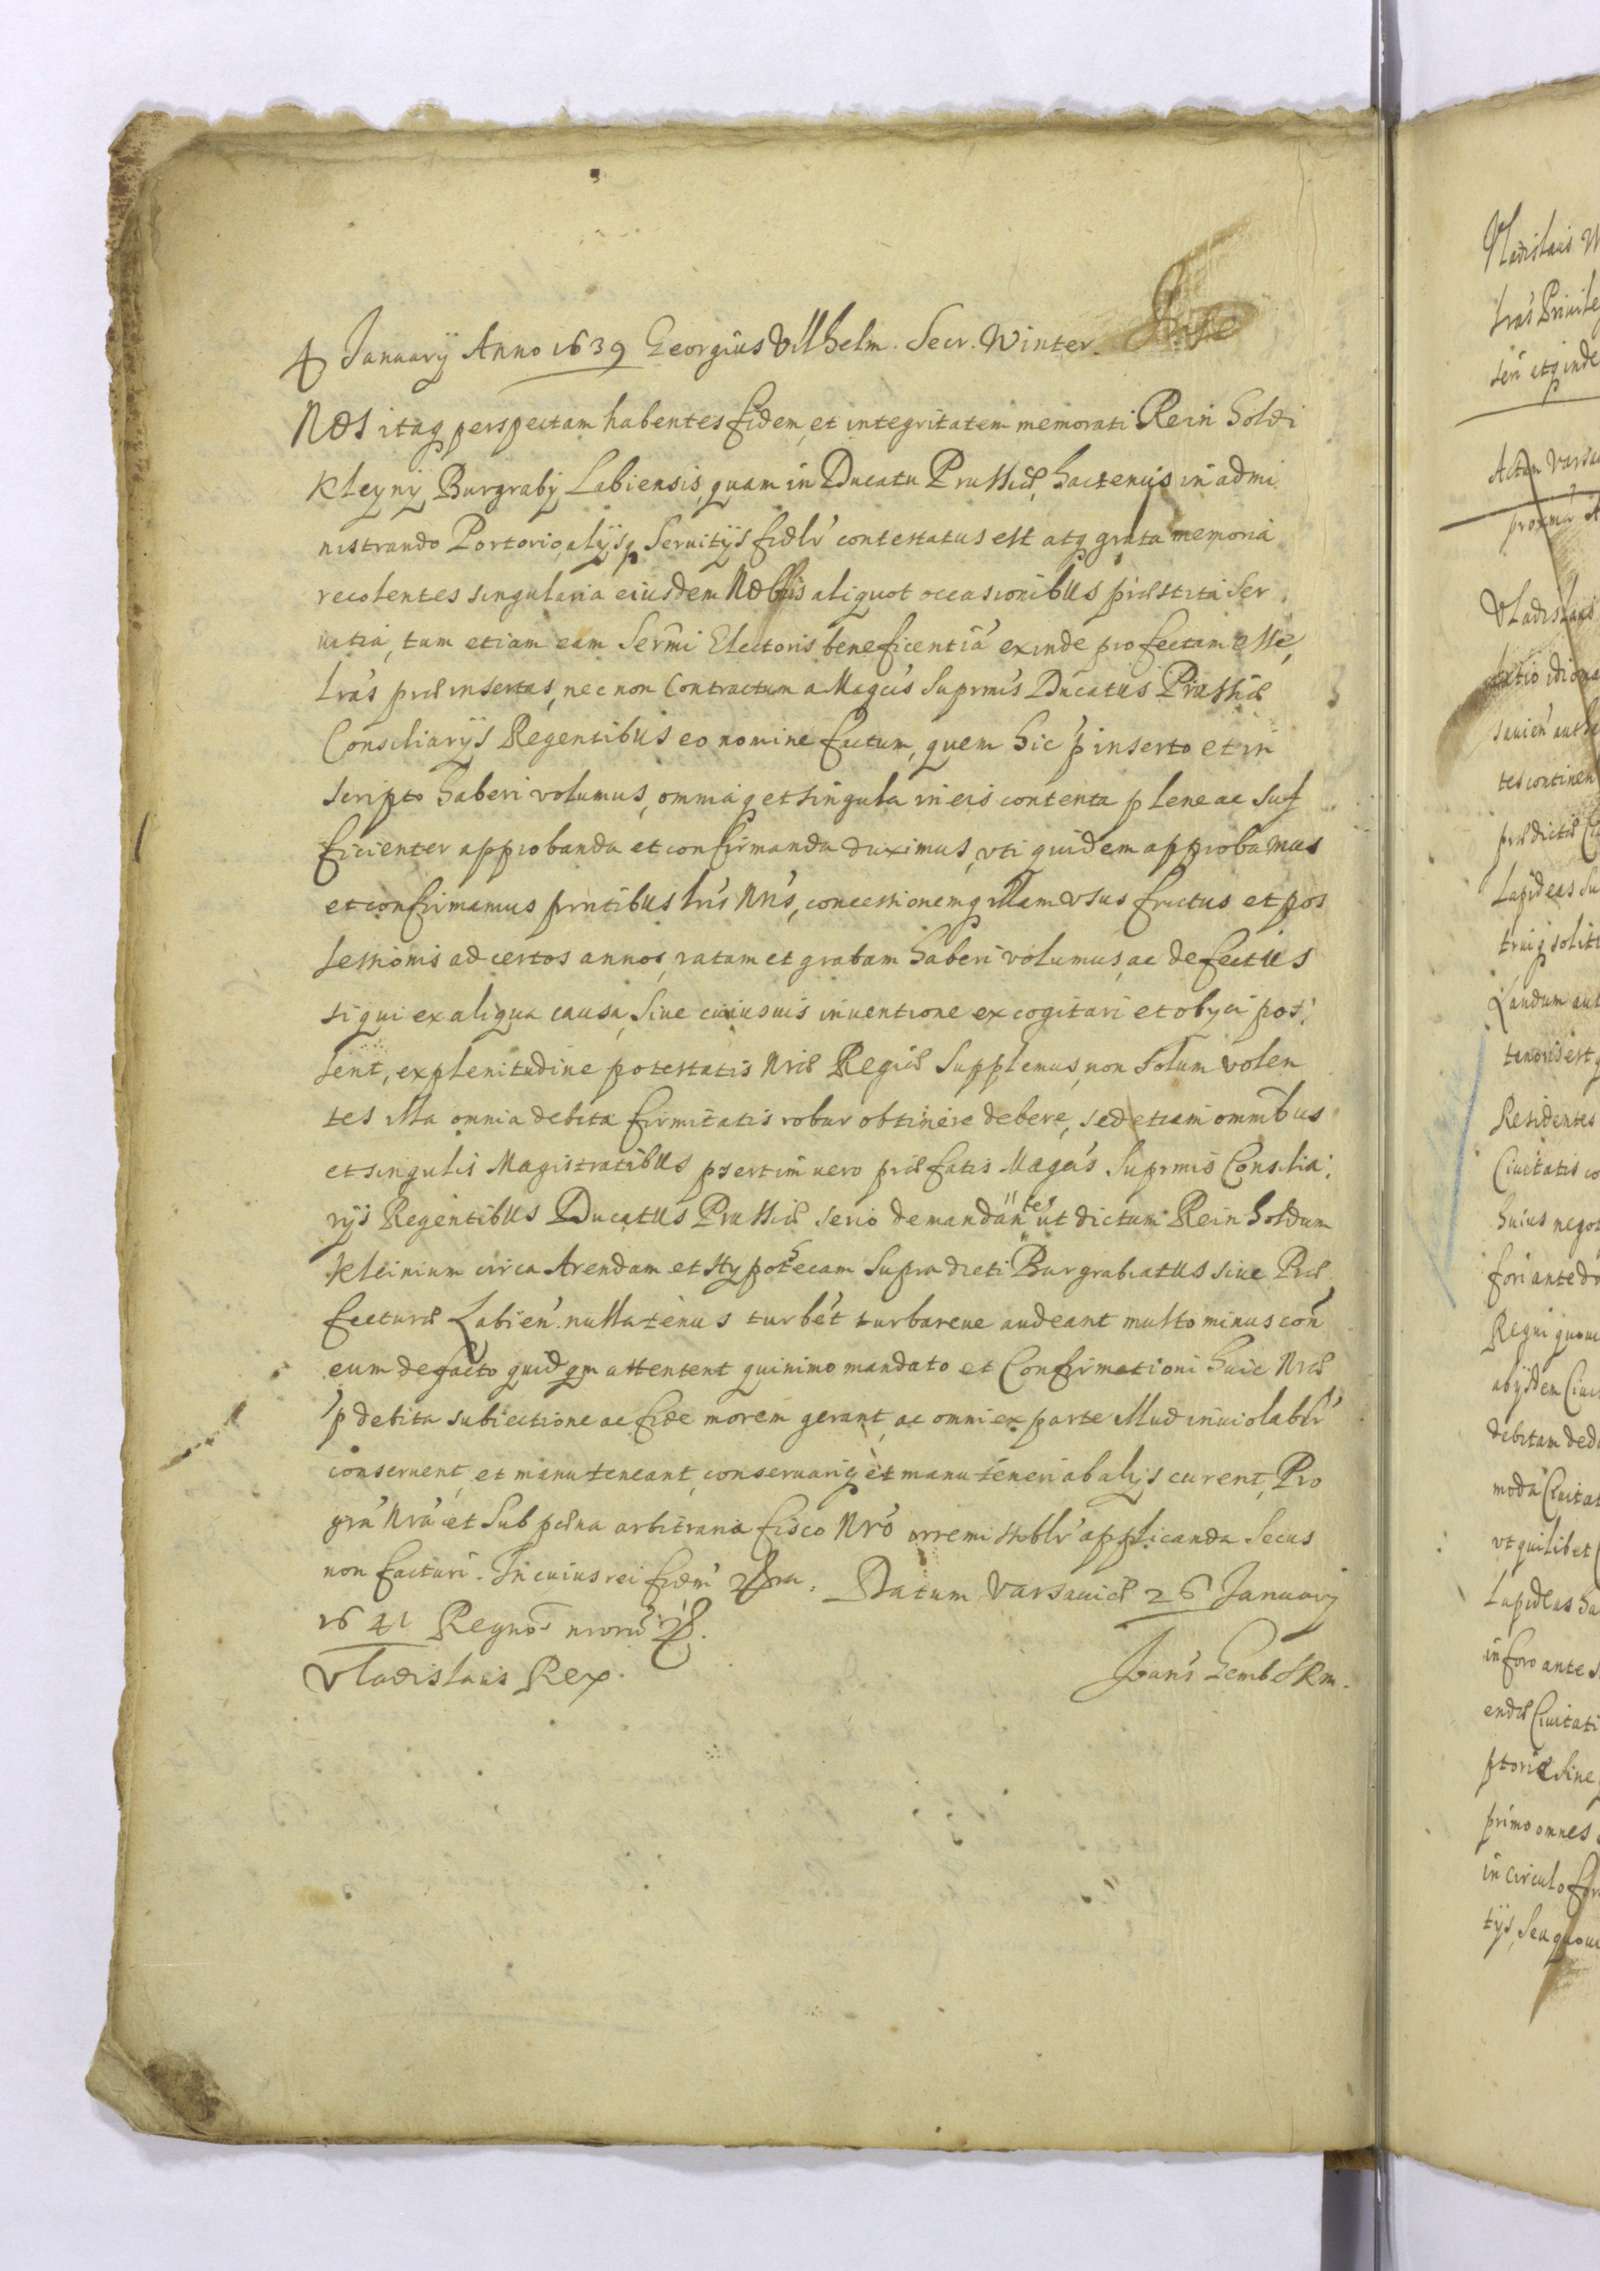 4 Januarÿ Anno 1639 Georgius Vilhelm. Secr. Winter.
Nos itaq perspectam habentes fidem et integritatem memorati Rein holdi
Kleynÿ Burgrabÿ Labiensis, quam in Ducatu Prussiæ, hactenus in admi
nistrando Portorio, alÿsq Seruitÿs fidlr contestatus est atq grata memoria
recolentes singularia eiusdem Nobis aliquot occasionibus præstita ser
uitia, tum etiam eam Sermi Electoris beneficentiā exinde profectam esse,
Lras præinsertas, nec non Contractum a Magcis Suprmis Ducatus Prussiæ
Consiliarÿs Regentibus eo nomine factum, quem hic p inserto et in
scripto haberi volumus, omniaq et singula in eis contenta plene ac suf
ficienter approbanda et confirmanda duximus, vti quidem approbamus
et confirmamus pntibus lris Nris, concessionemq illam vsus fructus et pos
sessionis ad certos annos, ratam et gratam haberi volumus, ac defectus
si qui ex aliqua causa, siue cuiusuis inuentione excogitari et obÿci pos
sent, ex plenitudine potestatis Nræ Regiæ supplemus, non solum volen
tes illa omnia debita firmitatis robur obtinere debere, sed etiam omnibus
et singulis Magistratibus psertim vero præfatis Magcis Suprmis Consilia
rÿs Regentibus Ducatus Prussiæ serio demandan tes ut dictum Rein holdum
Kleinium circa Arendam et Hypothecam supra dicti Burgrabiatus siue Præ
fecturæ Labien nullatenus turbet turbareue audeant multo minus con
eum de facto quidqm attentent quinimo mandato et Confirmationi huic Nræ
p debita subiectione ac fide morem gerant, ac omni ex parte illud inuiolablr
conseruent, et manuteneant, conseruariq et manuteneri ab alÿs curent, Pro
gra Nra et sub pæna arbitraria fisco Nro irremissiblr applicanda secus
non facturi. In cuius rei fidm Datum Varsauiæ 26 Januarÿ
1641 Regnor nrorū
Vladislaus Rex.
Joan's Gemb SRm.
Vladislaus
Lras Priuile
Actum Varsa
Vladislaus
tes continen
prædictæ Ci
Lapideas su
Laudum aut
tenoris est q
Residentes
Ciuitatis co
huius negot
fori ante do
Regni quou
ab ÿsdem Ciui
debitam ded
moda Ciuitat
vt quilibet C
Lapideas ha
in foro ante s
endæ Ciuitati
ptoriæ siue
primo omnes
in circulo for
tÿs, seu quou